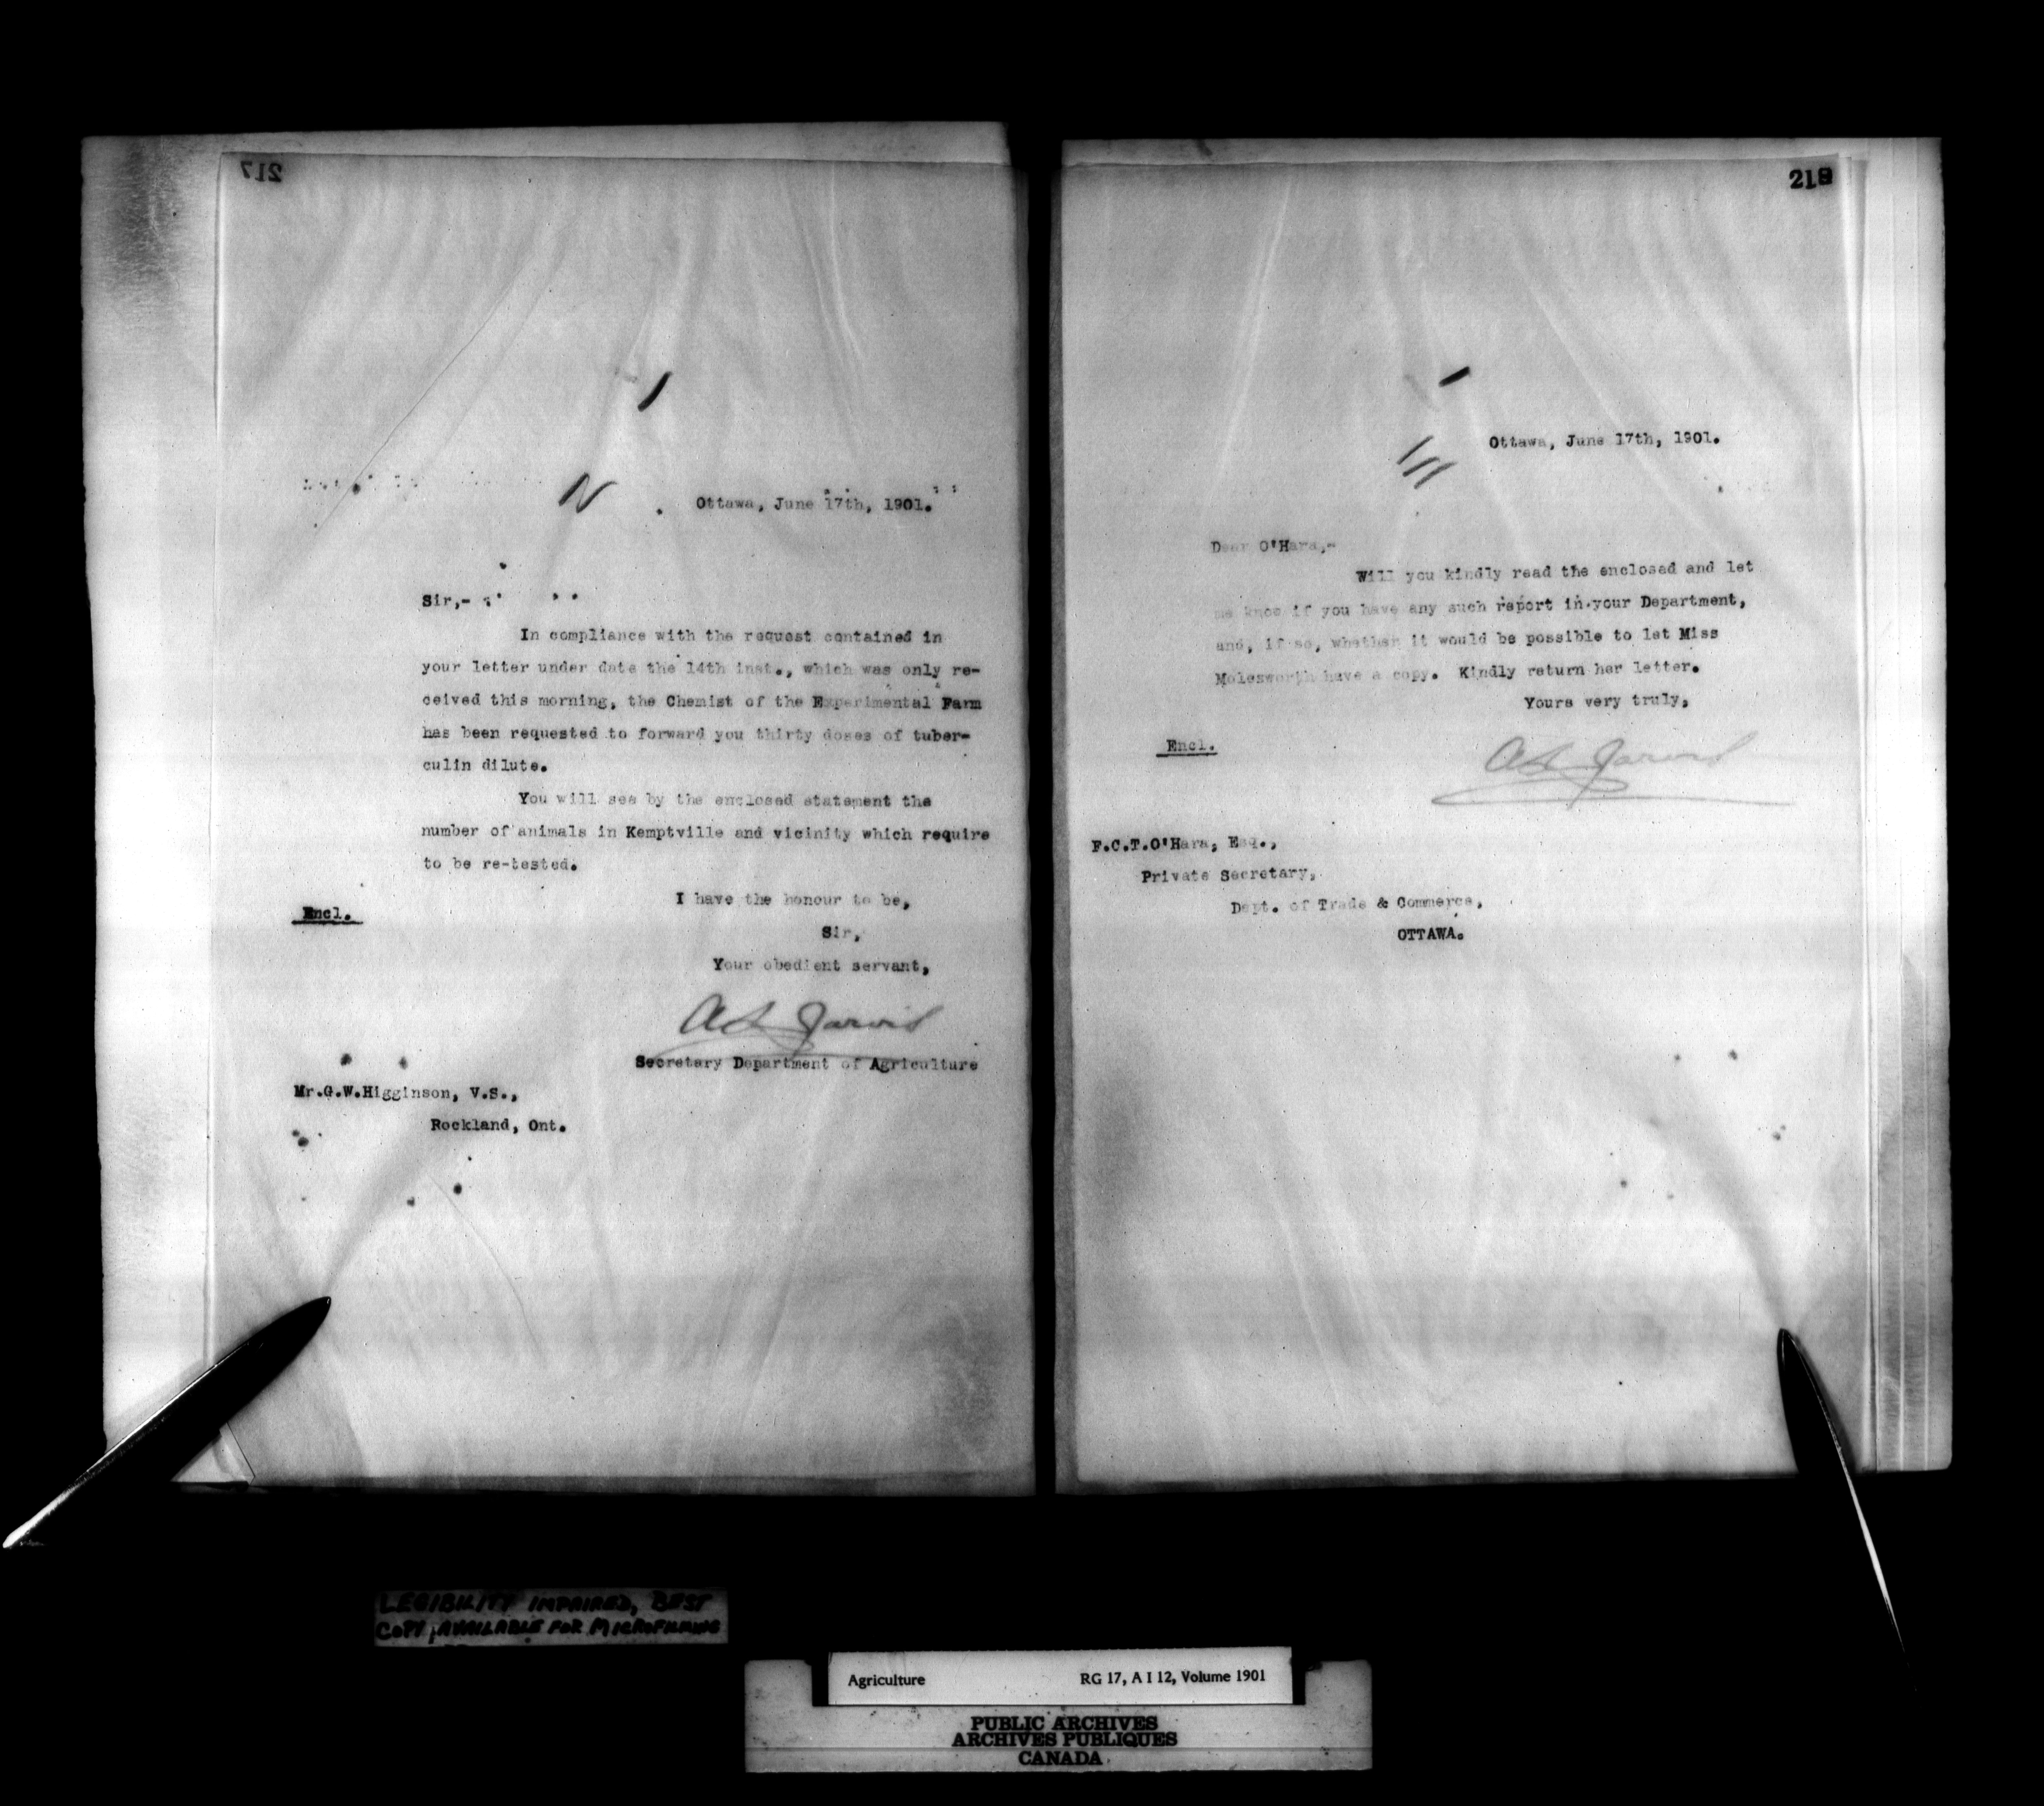 217
N
Ottawa, June 17th, 1901.
Sir,-
In compliance with the request contained in
your letter under date the 14th inst., which was only re-
ceived this morning, the Chemist of the Experimental Farm
has been requested to forward you thirty doses of tuber-
culin dilute.
You will see by the enclosed statement the
number of animals in Kemptville and vicinity which require
to be re-tested.
I have the honour to be,
Encl.
Sir,
Your obedient servant,
A L Jarvis
Secretary Department of Agriculture
Mr.G.W.Higginson, V.S.,
Rockland, Ont.
Ottawa, June 17th, 1901.
Dear O'Hara,-
Will you kindly read the enclosed and let
me know if you have any such report in your Department,
and, if so, whether it would be possible to let Miss
Molesworth have a copy. Kindly return her letter.
Yours very truly,
Encl.
A L Jarvis
F.C.T.O'Hara, Esq.,
Private Secretary,
Dept. of Trade & Commerce,
OTTAWA.
LEGIBILITY IMPAIRED, BEST
COPY AVAILABLE FOR MICROFILMING
Agriculture RG 17, A I 12, Volume 1901
PUBLIC ARCHIVES
ARCHIVES PUBLIQUES
CANADA